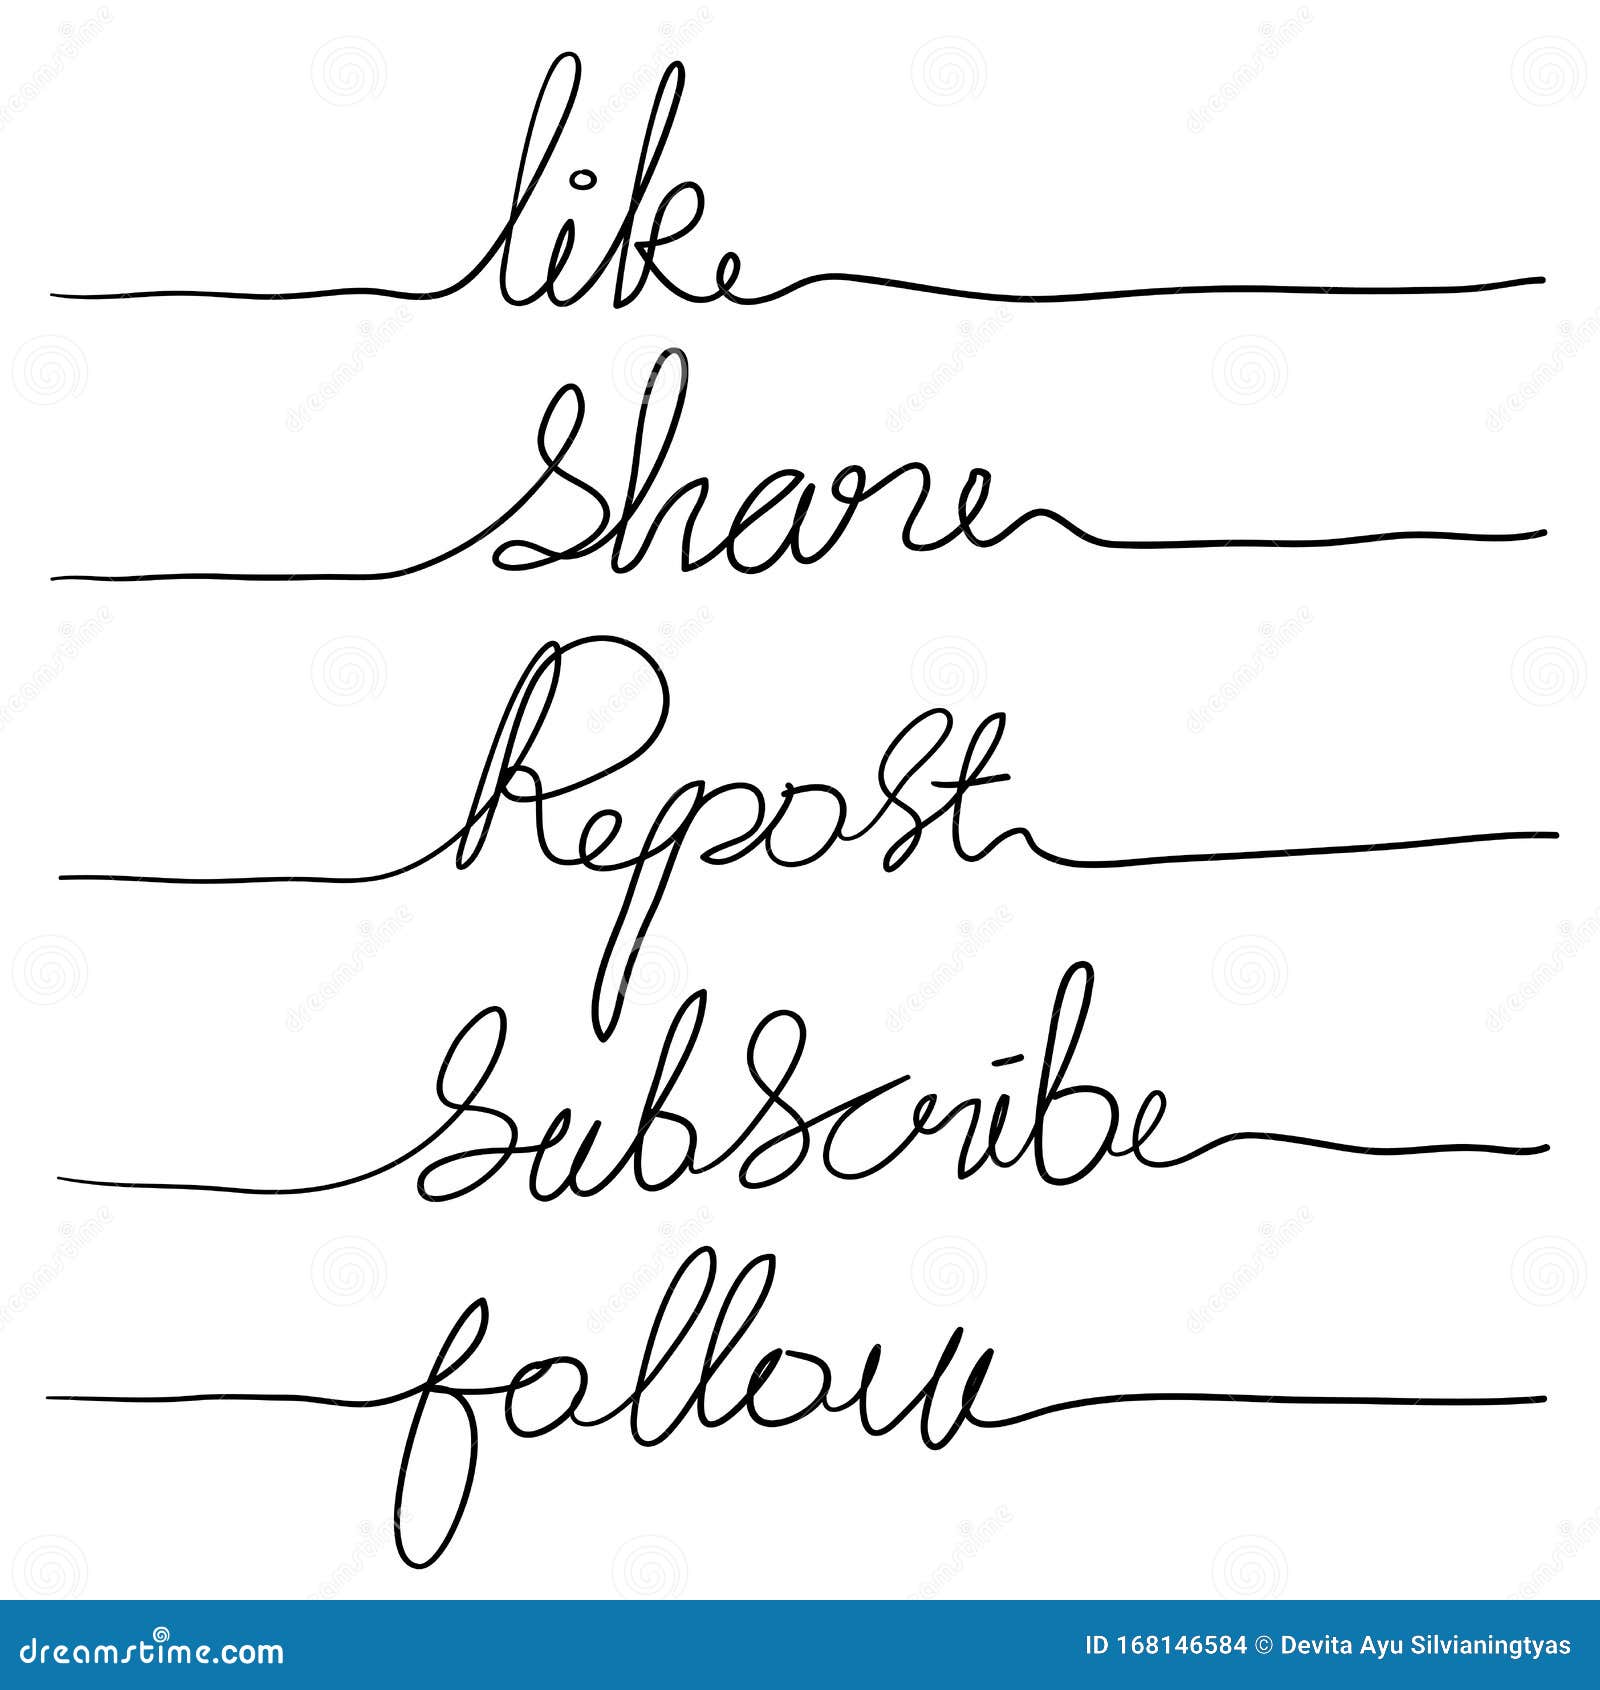 like
share
Repost
Subscribe
follow
dreamstime.com
ID 168146584 © Devita Ayu Silvianingtyas